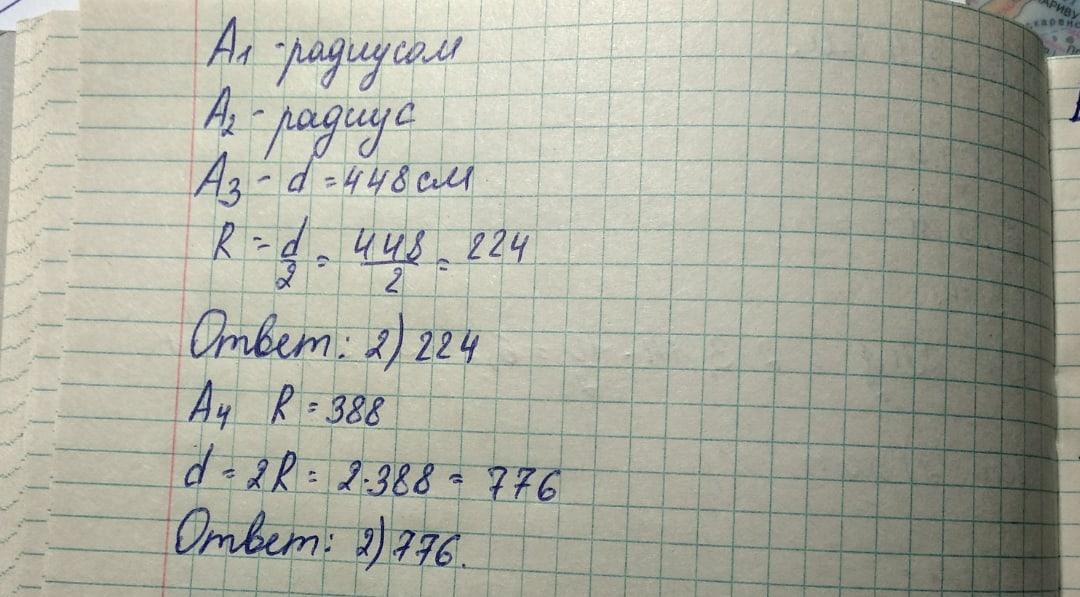 А1 - радиусом
А2 - радиус
А3 - d = 448 см
R = d/2 = 448/2 = 224
Ответ: 2) 224
А4 R = 388
d = 2R = 2·388 = 776
Ответ: 2) 776.